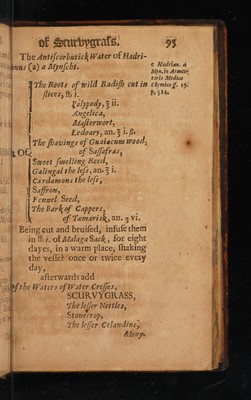 of Scurvygrass. 95
The Antiscorbutick Water of Hadri-
anus (a) a Mynscht.
a. Hadrian. à
Myn. in Armen-
tario Medico
Chymico
The Roots of wild Radish cut in
slices, ℔ i.
Polypody, ℥ ii.
Angelica,
Masterwort,
Zedoary, an. ℥ i. ß.
The shavings of Guaiacum wood,
Of of Sassafras,
Sweet smelling Reed,
Galingal the less, an. ℥ i.
Cardamons the less,
Saffron,
Fennel Seed,
The Bark of Cappers,
of Tamarisk, an. ʒ vi.
Being cut and bruised, infuse them
in ℔ i. of Malaga Sack, for eight
dayes, in a warm place, shaking
the vessel once or twice every
day,
afterwards add
Of the Waters of Water Cresses,
SCURVYGRASS,
The lesser Nettles,
Stonecrop,
The lesser Celandine,
Mony-